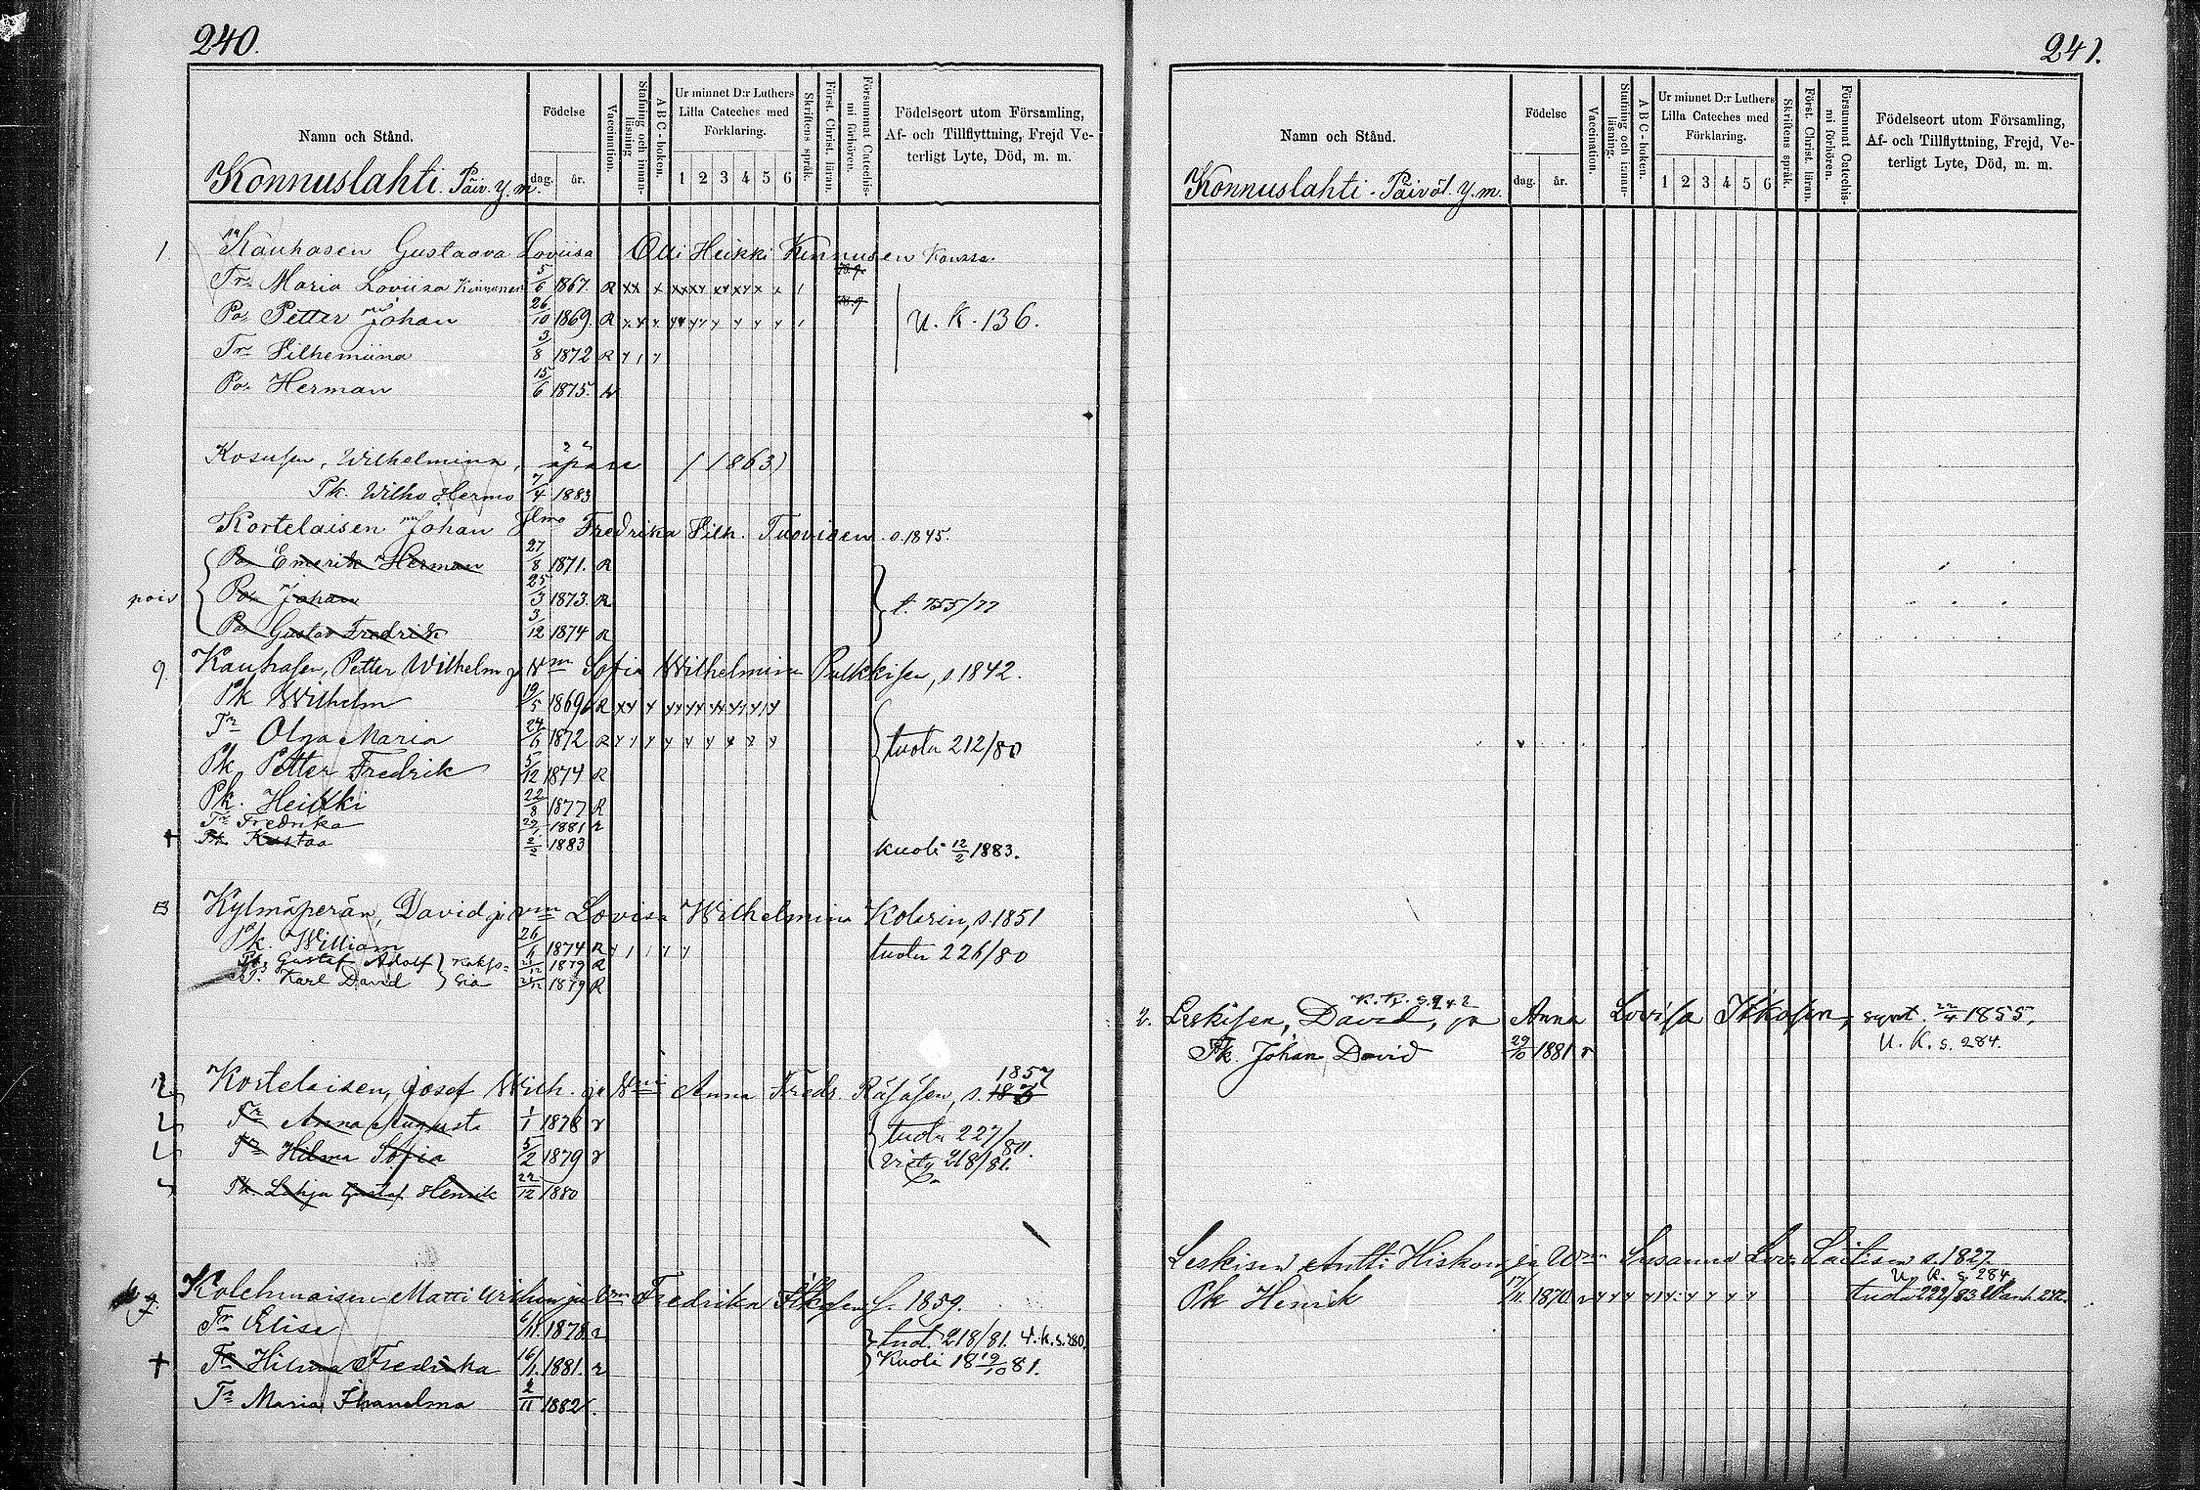 240.
Namn och Stånd.
Födelse
dag. år.
Vaccination.
Stafning och innanläsning
A B C-boken.
Ur minnet D:r Luthers Lilla Cateches med Förklaring.
1 2 3 4 5 6
Skriftens språk.
Först. Christ. läran.
Försummat Catechismi förhören.
Födelseort utom Församling, Af- och Tillflyttning, Frejd Veterligt Lyte, Död, m. m.
Konnuslahti. Päiv. y. m.
1. Kauhasen Gustaava Loviisa Olli Heikki Kinnusen kanssa.
Tr. Maria Loviisa Kinnunen 5/6 1867. R
Po. Petter Johan 26/10 1869. R U. K. 136.
Tr Vilhemiina 3/8 1872 R
Po. Herman 15/6 1875.
Kosusen, Wilhelmina, äpärä (1863)
Pk. Wilho Hermo 7/4 1883
Kortelaisen Johan Fredrika Vilh. Tuovisen s. 1845.
Po Emerik Herman 27/8 1871. R
pois Po. Johan 25/3 1873. R t. 755/77
Po Gustav Fredrik 3/12 1874 R
9 Kauhasen, Petter Wilhelm ja Wm Sofia Wilhelmina Pulkkisen, s. 1842.
Pk Wilhelm 19/5 1869 R
Tr Olga Maria 24/6 1872 R tuotu 212/80
Pk Petter Fredrik 5/12 1874 R
Pk. Heikki 22/8 1877 R
Tr Fredrika 1881 r
† Pk Kustaa 2/2 1883 kuoli 12/2 1883.
Kylmäperän, David ja vm Lovisa Wilhelmina Kolarin, s. 1851
Pk. William 26/6 1874 R tuotu 226/80
Pk. Gustaf Adolf 1879 R
Karl David 1879 R
2. Kortelaisen, Josef Wilh. ja Anna Fredr. Räsäsen, s. 1857
Tr Anna Augusta 1/1 1878 r tuotu 227/80.
Tr Hilma Sofia 5/2 1879 r viety 218/81.
Pk. Gustaf Henrik 22/12 1880
Kolehmaisen Matti ja Vm Fredrika S. 1859.
Tr Elise 1878 r tuot. 218/81. U. k. s. 280.
† Tr Hilma Fredrika 16/1. 1881. r Kuoli 18 19/10 81.
Tr Maria 2/11 1882
241.
Namn och Stånd.
Födelse
dag. år.
Vaccination.
Stafning och innanläsning
A B C-boken.
Ur minnet D:r Luthers Lilla Cateches med Förklaring.
1 2 3 4 5 6
Skriftens språk.
Först. Christ. läran.
Försummat Catechismi förhören.
Födelseort utom Församling, Af- och Tillflyttning, Frejd, Veterligt Lyte, Död, m. m.
Konnuslahti. Päiväl. y. m.
2. Leskisen, David, ja Anna Lovisa Ikäläsen, synt. 22/4 1855.
Pk. Johan David 29/10 1881 r U. K. s. 284.
Leskisen Antti Hiskon ja Wm Susanna Lov. Laitisen s. 1827.
U. K. s. 284
Pk Henrik 17/11 1870 tuotu 222/83